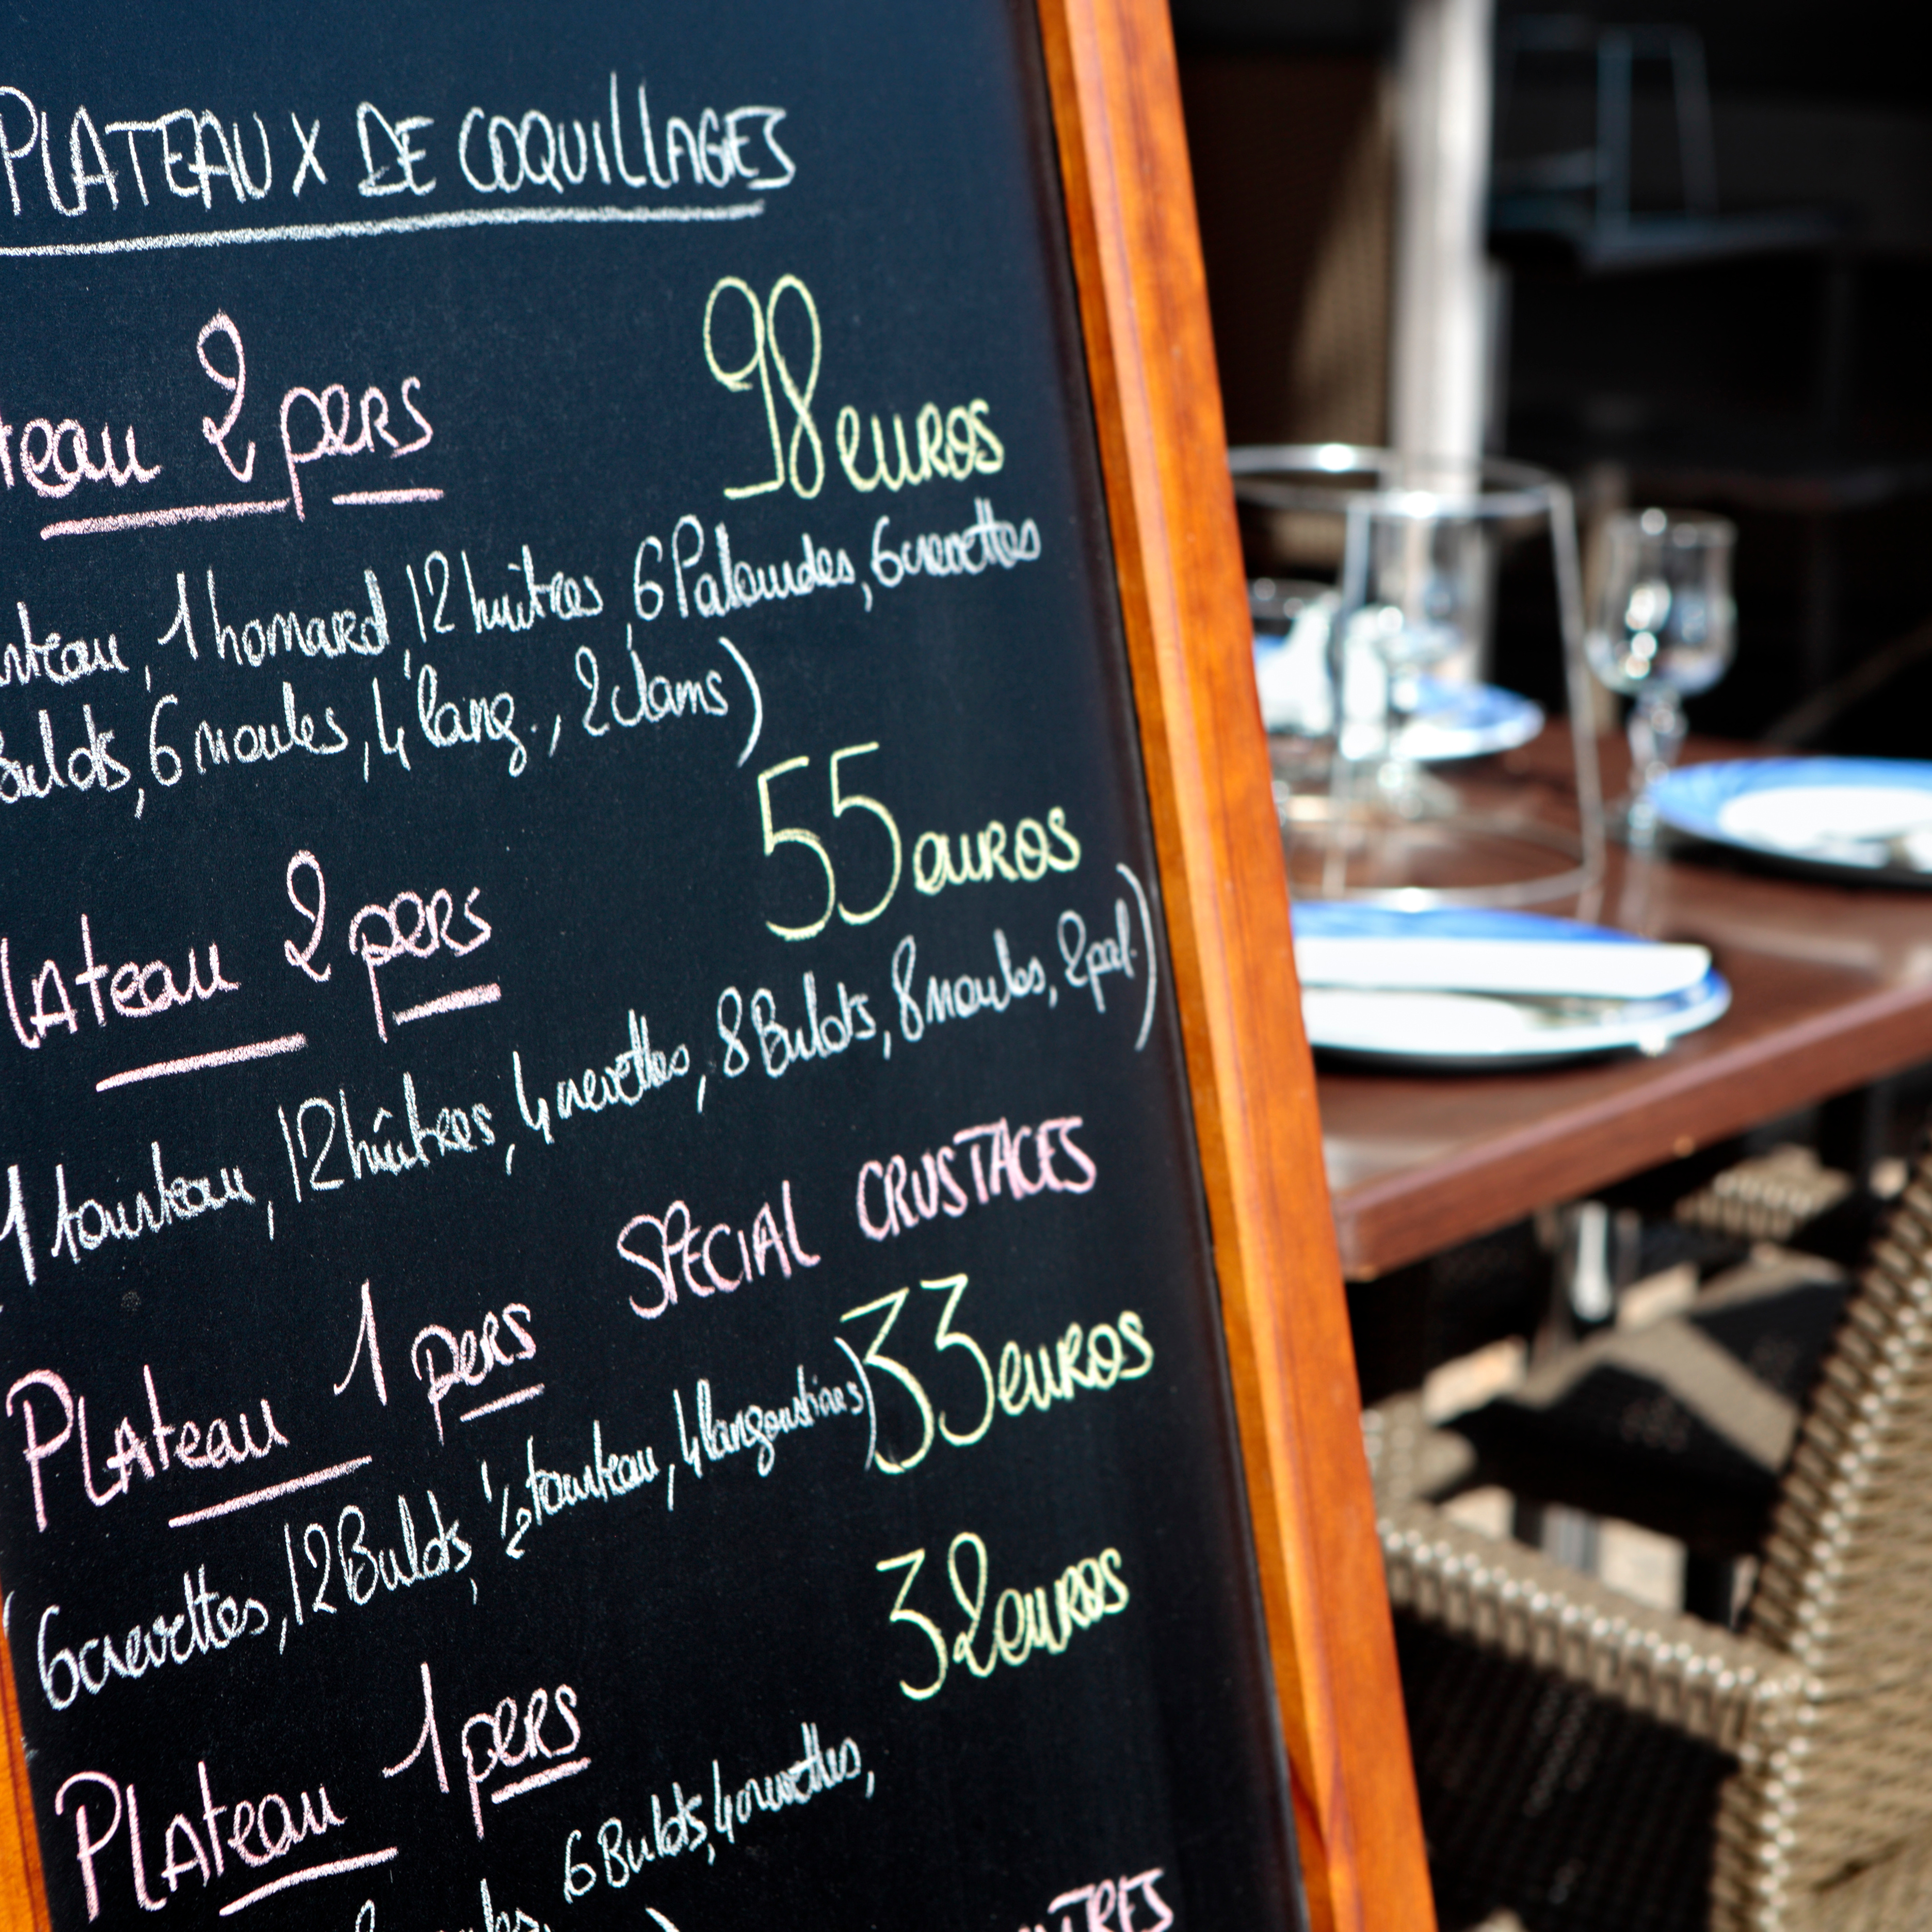 PLATEAUX DE COQUILLAGES
teau 2 pers
98 euros
nteau, 1 homard, 12 huitres, 6 Palourdes, 6 crevettes
Bulots, 6 moules, 4 lang., 2 clams)
Plateau 2 pers
55 euros
1 tourteau, 12 huîtres, 4 crevettes, 8 Bulots, 8 moules, 2 pal.)
Plateau 1 pers SPECIAL CRUSTACES
33 euros
(6 crevettes, 12 Bulots, 1/2 tourteau, 4 langoustines)
32 euros
Plateau 1 pers
6 Bulots, 4 crevettes,